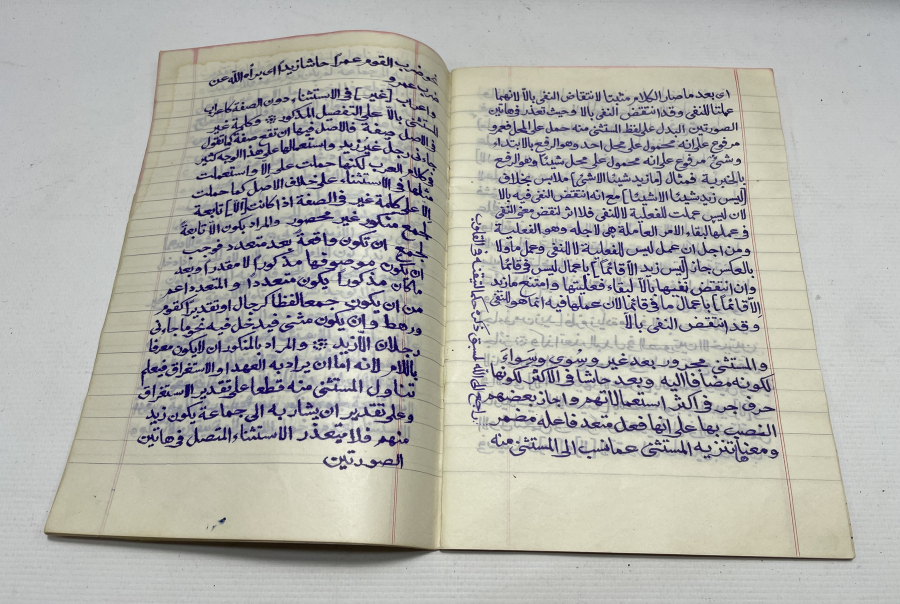 اى بعد ما صار الكلام مثبتا لانتقاض النفى بالا لانهما
عملتا للنفى وقد انتقض النفى بالا وحيث تعذر فى هاتين
الصورتين البدل على لفظ المستثنى منه حمل على المحل فعمرو
مرفوع على انه محمول على محل احد وهو الرفع بالابتداء
وشئ مرفوع على انه محمول على محل شيئا وهو الرفع
بالخبرية فمثال [ما زيد شيئا الا شئ] ملابس بخلاف
[ليس زيد شيئا الا شيئا] مع انه انتقض النفى فيه بالا
لان ليس عملت للفعلية لا للنفى فلا اثر لنقض معنى النفى
فى عملها لبقاء الامر العاملة هى لاجله وهو الفعلية
ومن اجل ان عمل ليس للفعلية لا للنفى وعمل ما ولا
بالعكس جاز [ليس زيد الا قائما] باعمال ليس فى قائما
وان انتقض نفيها بالا لبقاء فعليتها وامتنع ما زيد
الا قائما] باعمال ما فى قائما لان عملها فيه انما هو للنفى
وقد انتقض النفى بالا
والمستثنى مجرور بعد غير وسوى وسواء
لكونه مضافا اليه وبعد حاشا فى الاكثر لكونها
حرف جر فى اكثر استعمالاتهم واجاز بعضهم
النصب بها على انها فعل متعد فاعله مضمر
ومعناها تنزيه المستثنى عما نسب الى المستثنى منه
نحو ضرب القوم عمرا حاشا زيدا اى برأه الله عن
ضرب عمرو
واعراب [غير] فى الاستثناء دون الصفة كاعراب
المستثنى بالا على التفصيل المذكور وكلمة غير
فى الاصل صفة فالاصل فيها ان تقع صفة كما تقول
جاءنى رجل غير زيد واستعمالها على هذا الوجه كثير
فى كلام العرب لكنها حملت على الا واستعملت
مثلها فى الاستثناء على خلاف الاصل كما حملت
الا على كلمة غير فى الصفة اذا كانت [الا] تابعة
لجمع منكور غير محصور والمراد بكون الا تابعة
لجمع ان تكون واقعة بعد متعدد فوجب
ان يكون موصوفها مذكورا لا مقدرا وبعد
ما كان مذكورا يكون متعددا والمتعدد اعم
من ان يكون جمعا لفظا كرجال او تقديرا كقوم
ورهط وان يكون مثنى فيدخل فيه نحو ما جاءنى
رجلان الا زيد والمراد بالمنكور ان لا يكون معرفا
باللام لانه اما ان يراد به العهد او الاستغراق فيعلم
تناول المستثنى منه قطعا على تقدير الاستغراق
وعلى تقدير ان يشار به الى جماعة يكون زيد
منهم فلا يتعذر الاستثناء المتصل فى هاتين
الصورتين